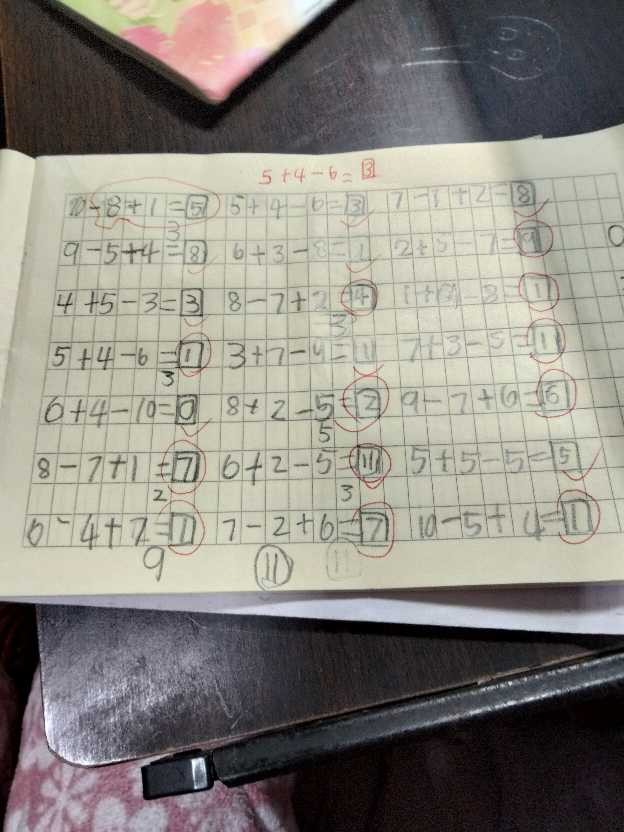 5+4-6=3
10-8+1=5 5+4-6=3 7-1+2=8
3
9-5+4=8 6+3-8=1 2+5-7=
4+5-3=3 8-7+2=4 -8=1
3
5+4-6=1 3+7-4=1 7+3-5=1
3
6+4-10=0 8+2-5=2 9-7+6=6
5
8-7+1=7 6+2-5=11 5+5-5=5
2 3
6-4+7=1 7-2+6=7 10-5+4=1
9 11 11